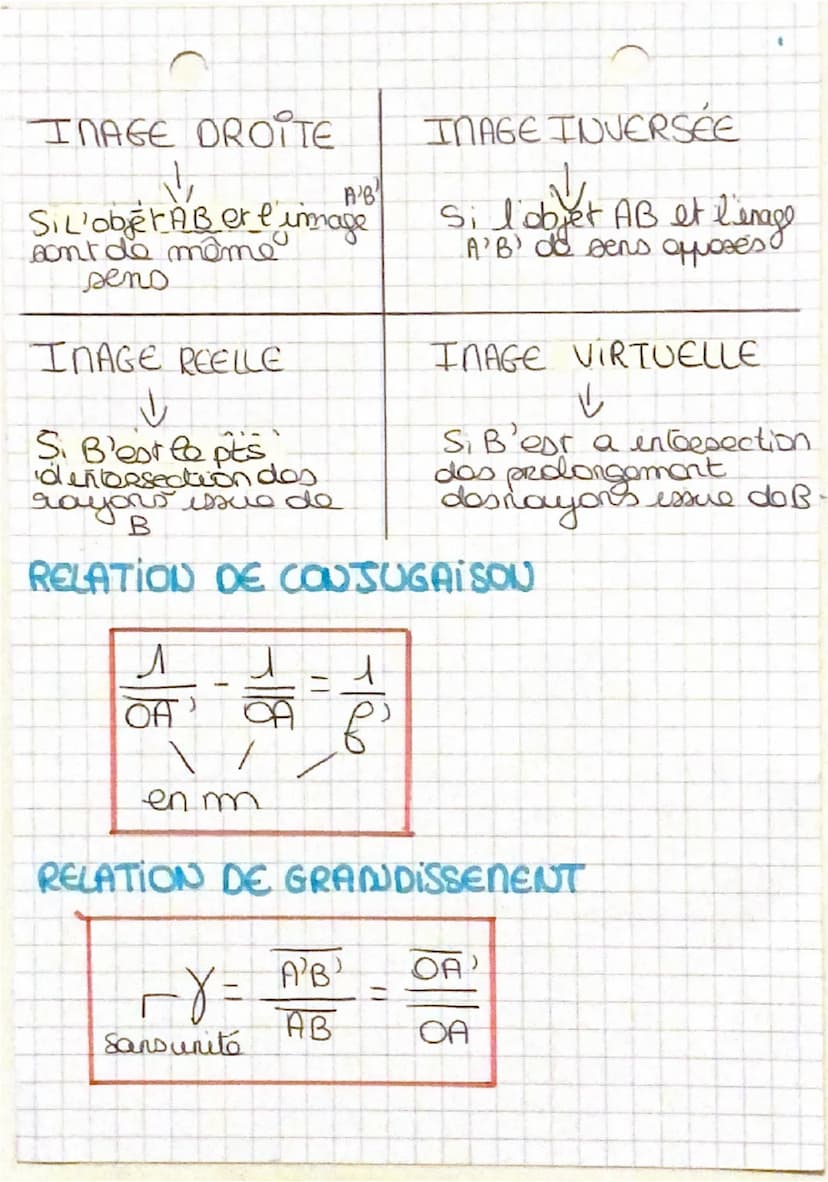 IMAGE DROITE
↓
A'B'
Si L'objet AB et l'image
sont de même
sens
IMAGE INVERSÉE
↓
Si l'objet AB et l'image
A'B' de sens opposés
IMAGE REELLE
↓
Si B'est le pts
d'intersection des
rayons issue de
B
IMAGE VIRTUELLE
↓
Si B'est a intersection
des prolongement
des rayons issue de B
RELATION DE CONJUGAISON
1/OA' - 1/OA = 1/f'
en m
RELATION DE GRANDISSEMENT
γ = A'B'/AB = OA'/OA
sans unité